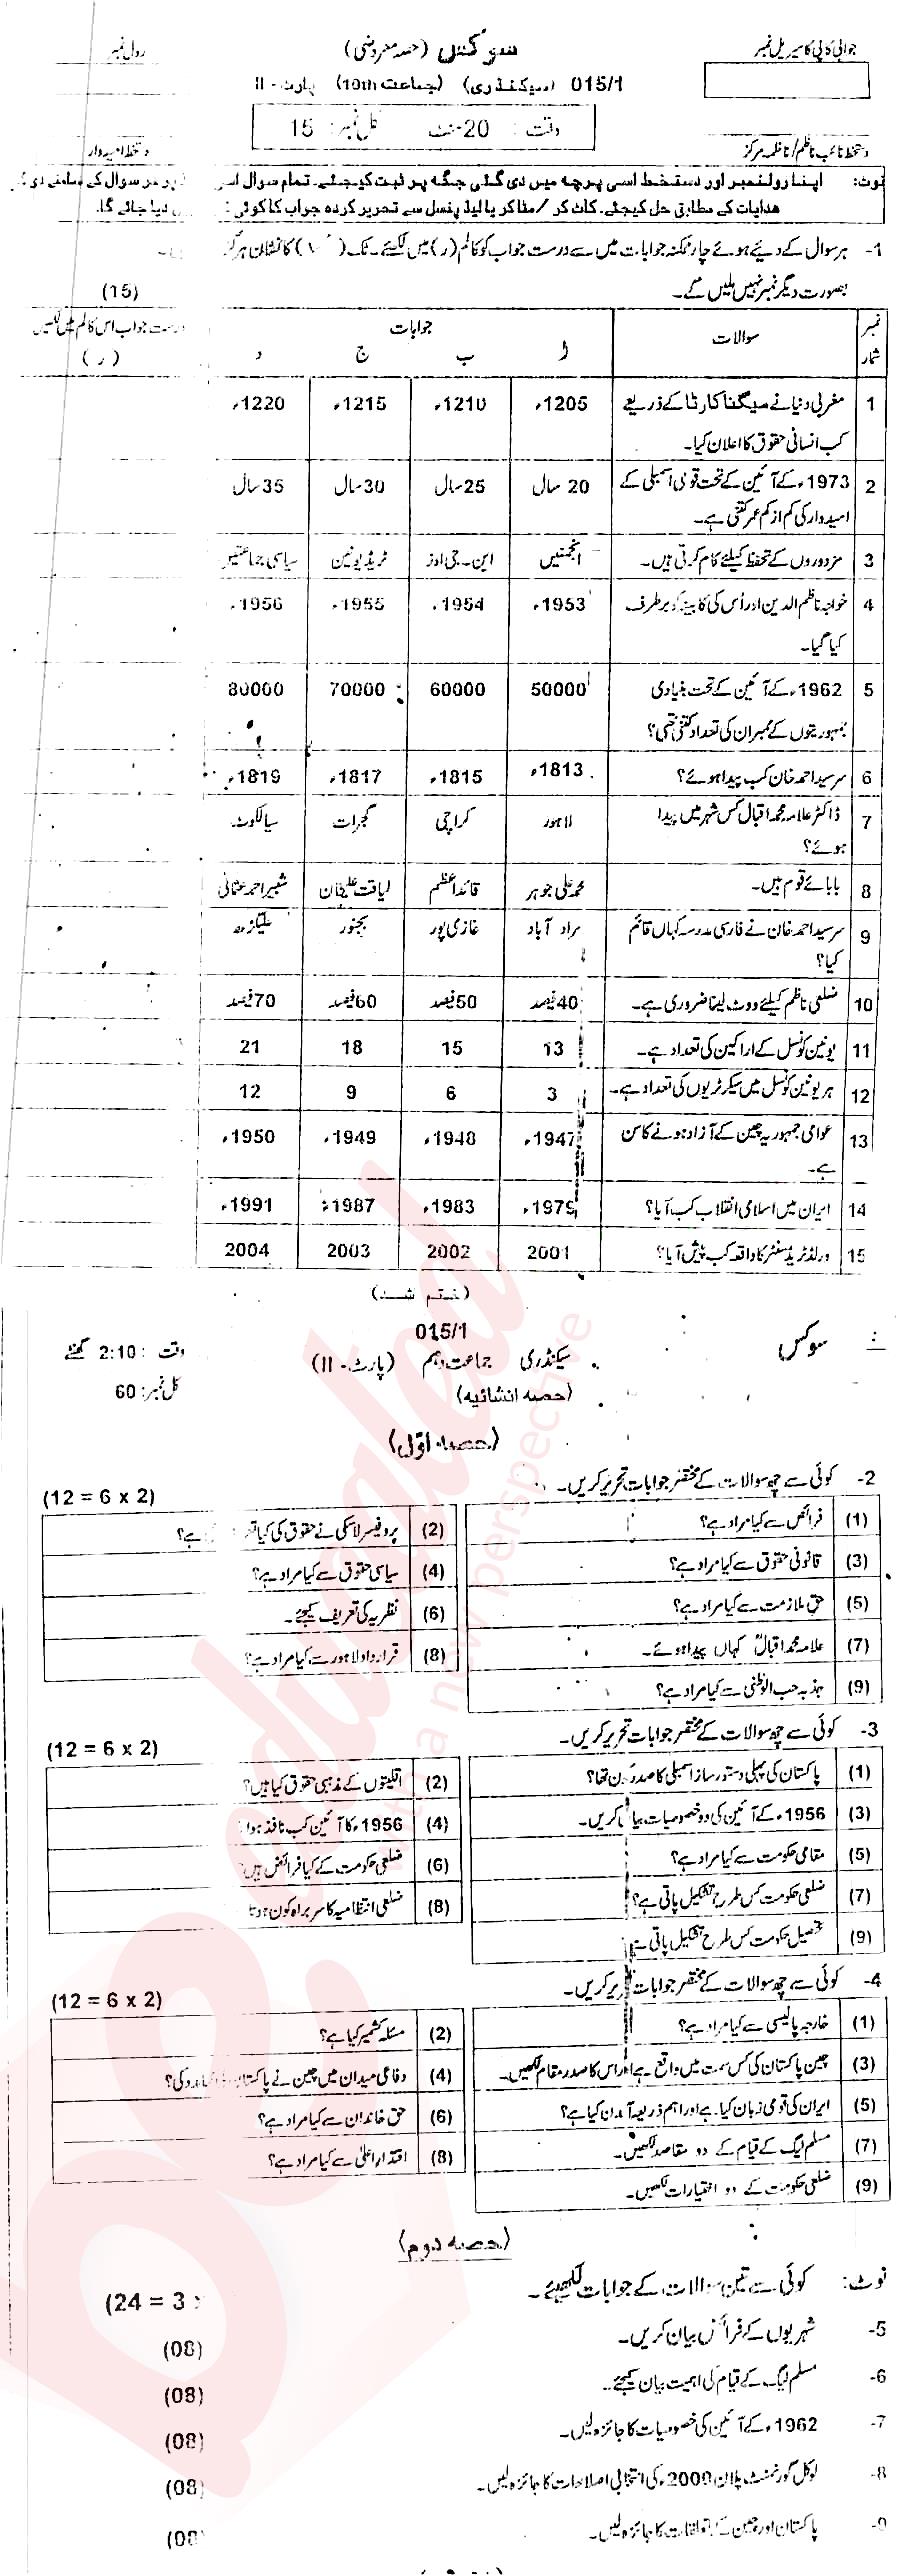 جوابی کاپی کا سیریل نمبر
سوکس (حصہ معروضی)
رول نمبر
015/1 (سیکنڈری) (جماعت 10th) پارٹ - II
وقت : 20 منٹ کل نمبر: 15
دستخط نائب ناظم/ناظمہ مرکز
دستخط امیدوار
نوٹ: اپنا رولنمبر اور دستخط اسی پرچہ میں دی گئی جگہ پر ثبت کیجئے۔ تمام سوال اسی پر ہر سوال کے سامنے دی گئی
ھدایات کے مطابق حل کیجئے۔ کاٹ کر / مٹا کر یا لیڈ پنسل سے تحریر کردہ جواب کا کوئی دیا جائے گا۔
1- ہر سوال کے دیئے ہوئے چار ممکنہ جوابات میں سے درست جواب کو کالم (ر) میں لکھئے۔ ٹک (✓) کا نشان ہرگز
بصورت دیگر نمبر نہیں ملیں گے۔ (15)
نمبر شمار سوالات جوابات درست جواب اس کالم میں لکھیں
ا ب ج د (ر)
1 مغربی دنیا نے میگنا کارٹا کے ذریعے 1205ء 1210ء 1215ء 1220ء
کب انسانی حقوق کا اعلان کیا۔
2 1973ء کے آئین کے تحت قومی اسمبلی کے 20 سال 25 سال 30 سال 35 سال
امیدوار کی کم از کم عمر کتنی ہے۔
3 مزدوروں کے تحفظ کیلئے کام کرتی ہیں۔ انجمنیں این-جی اوز ٹریڈ یونین سیاسی جماعتیں
4 خواجہ ناظم الدین اور اُس کی کابینہ کو برطرف 1953ء 1954ء 1955ء 1956ء
کیا گیا۔
5 1962ء کے آئین کے تحت بنیادی 50000 60000 70000 80000
جمہوریتوں کے ممبران کی تعداد کتنی تھی؟
6 سر سید احمد خان کب پیدا ہوئے؟ 1813ء 1815ء 1817ء 1819ء
7 ڈاکٹر علامہ محمد اقبال کس شہر میں پیدا لاہور کراچی گجرات سیالکوٹ
ہوئے؟
8 بابائے قوم ہیں۔ محمد علی جوہر قائد اعظم لیاقت علیخان شبیر احمد عثمانی
9 سر سید احمد خان نے فارسی مدرسہ کہاں قائم مراد آباد غازی پور بجنور علیگڑھ
کیا؟
10 ضلعی ناظم کیلئے ووٹ لینا ضروری ہے۔ 40 فیصد 50 فیصد 60 فیصد 70 فیصد
11 یونین کونسل کے اراکین کی تعداد ہے۔ 13 15 18 21
12 ہر یونین کونسل میں سیکرٹریوں کی تعداد ہے۔ 3 6 9 12
13 عوامی جمہوریہ چین کے آزاد ہونے کا سن 1947ء 1948ء 1949ء 1950ء
ہے۔
14 ایران میں اسلامی انقلاب کب آیا؟ 1979ء 1983ء 1987ء 1991ء
15 ورلڈ ٹریڈ سنٹر کا واقعہ کب پیش آیا؟ 2001 2002 2003 2004
(ختم شد)
015/1
سوکس سیکنڈری جماعت دہم (پارٹ - II) وقت : 2:10 گھنٹے
(حصہ انشائیہ) کل نمبر: 60
(حصہ اوّل)
2- کوئی سے چھ سوالات کے مختصر جوابات تحریر کریں۔ (12 = 6 x 2)
(1) فرائض سے کیا مراد ہے؟ (2) پروفیسر لاسکی نے حقوق کی کیا ہے؟
(3) قانونی حقوق سے کیا مراد ہے؟ (4) سیاسی حقوق سے کیا مراد ہے؟
(5) حق ملازمت سے کیا مراد ہے؟ (6) نظریہ کی تعریف کیجئے۔
(7) علامہ محمد اقبالؒ کہاں پیدا ہوئے۔ (8) قرارداد لاہور سے کیا مراد ہے؟
(9) جذبہ حب الوطنی سے کیا مراد ہے؟
3- کوئی سے چھ سوالات کے مختصر جوابات تحریر کریں۔ (12 = 6 x 2)
(1) پاکستان کی پہلی دستور ساز اسمبلی کا صدر کون تھا؟ (2) اقلیتوں کے مذہبی حقوق کیا ہیں؟
(3) 1956ء کے آئین کی دو خصوصیات بیان کریں۔ (4) 1956ء کا آئین کب نافذ ہوا
(5) مقامی حکومت سے کیا مراد ہے؟ (6) ضلعی حکومت کے کیا فرائض ہیں
(7) ضلعی حکومت کس طرح تشکیل پاتی ہے؟ (8) ضلعی انتظامیہ کا سربراہ کون ہوتا
(9) تحصیل حکومت کس طرح تشکیل پاتی ہے
4- کوئی سے چھ سوالات کے مختصر جوابات تحریر کریں۔ (12 = 6 x 2)
(1) خارجہ پالیسی سے کیا مراد ہے؟ (2) مسئلہ کشمیر کیا ہے؟
(3) چین پاکستان کی کس سمت میں واقع ہے اور اس کا صدر مقام لکھیں۔ (4) دفاعی میدان میں چین نے پاکستان کی؟
(5) ایران کی قومی زبان کیا ہے اور اہم ذریعہ آمدن کیا ہے؟ (6) حق خاندان سے کیا مراد ہے؟
(7) مسلم لیگ کے قیام کے دو مقاصد لکھیں۔ (8) اقتدار اعلیٰ سے کیا مراد ہے؟
(9) ضلعی حکومت کے دو اختیارات لکھیں۔
(حصہ دوم)
نوٹ: کوئی سے تین سوالات کے جوابات لکھیئے۔ (24 = 3
5- شہریوں کے فرائض بیان کریں۔ (08)
6- مسلم لیگ کے قیام کی اہمیت بیان کیجئے۔ (08)
7- 1962ء کے آئین کی خصوصیات کا جائزہ لیں۔ (08)
8- لوکل گورنمنٹ پلان 2000ء کی انتخابی اصلاحات کا جائزہ لیں۔ (08)
9- پاکستان اور چین کے تعلقات کا جائزہ لیں۔ (08)